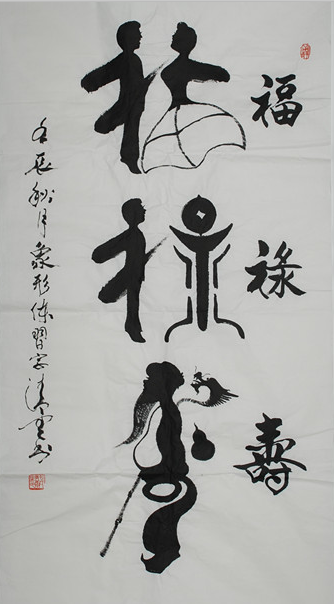 福
祿
壽
壬辰秋月象形体習字